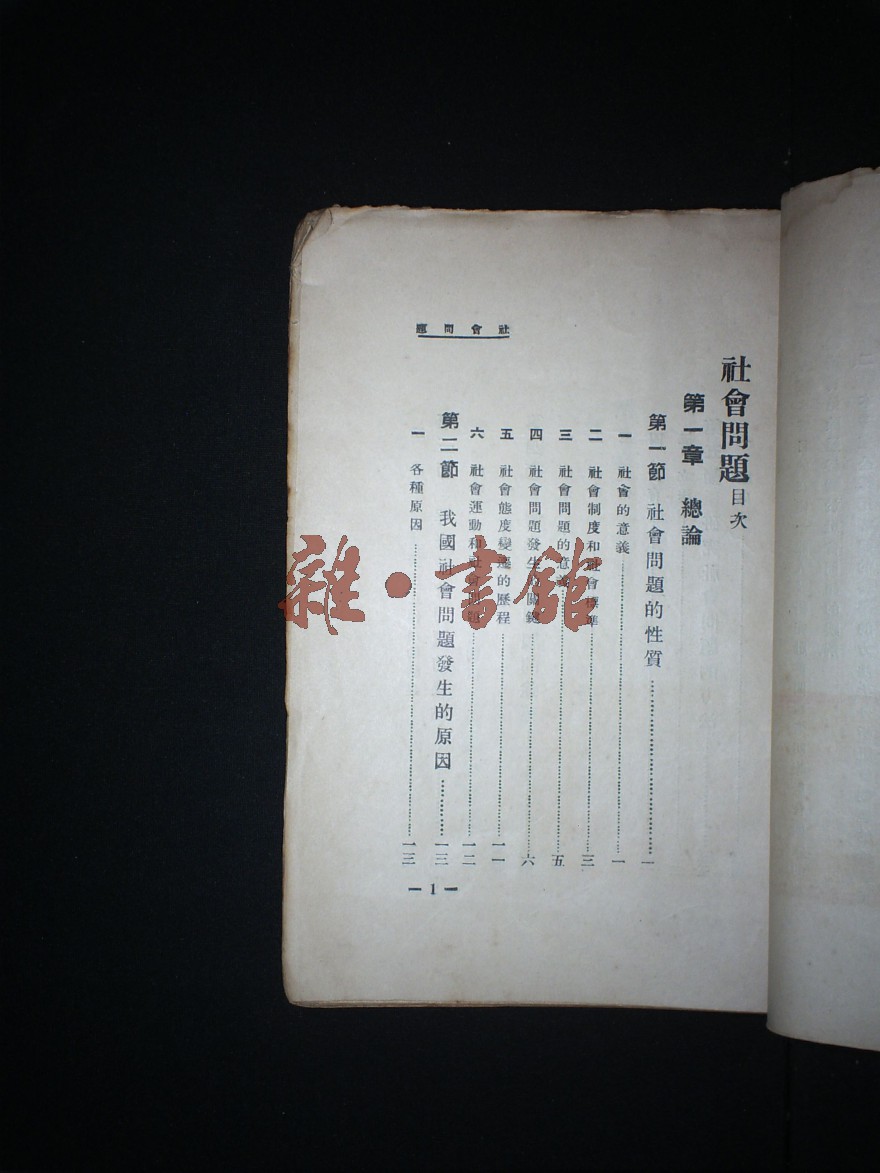 社會問題
社會問題目次
第一章 總論
第一節 社會問題的性質……一
一 社會的意義……一
二 社會制度和社會標準……三
三 社會問題的意義……五
四 社會問題發生的關鍵……六
五 社會態度變遷的歷程……一一
六 社會運動和社……一二
第二節 我國社會問題發生的原因……一三
一 各種原因……一三
— 1 —
雜·書館